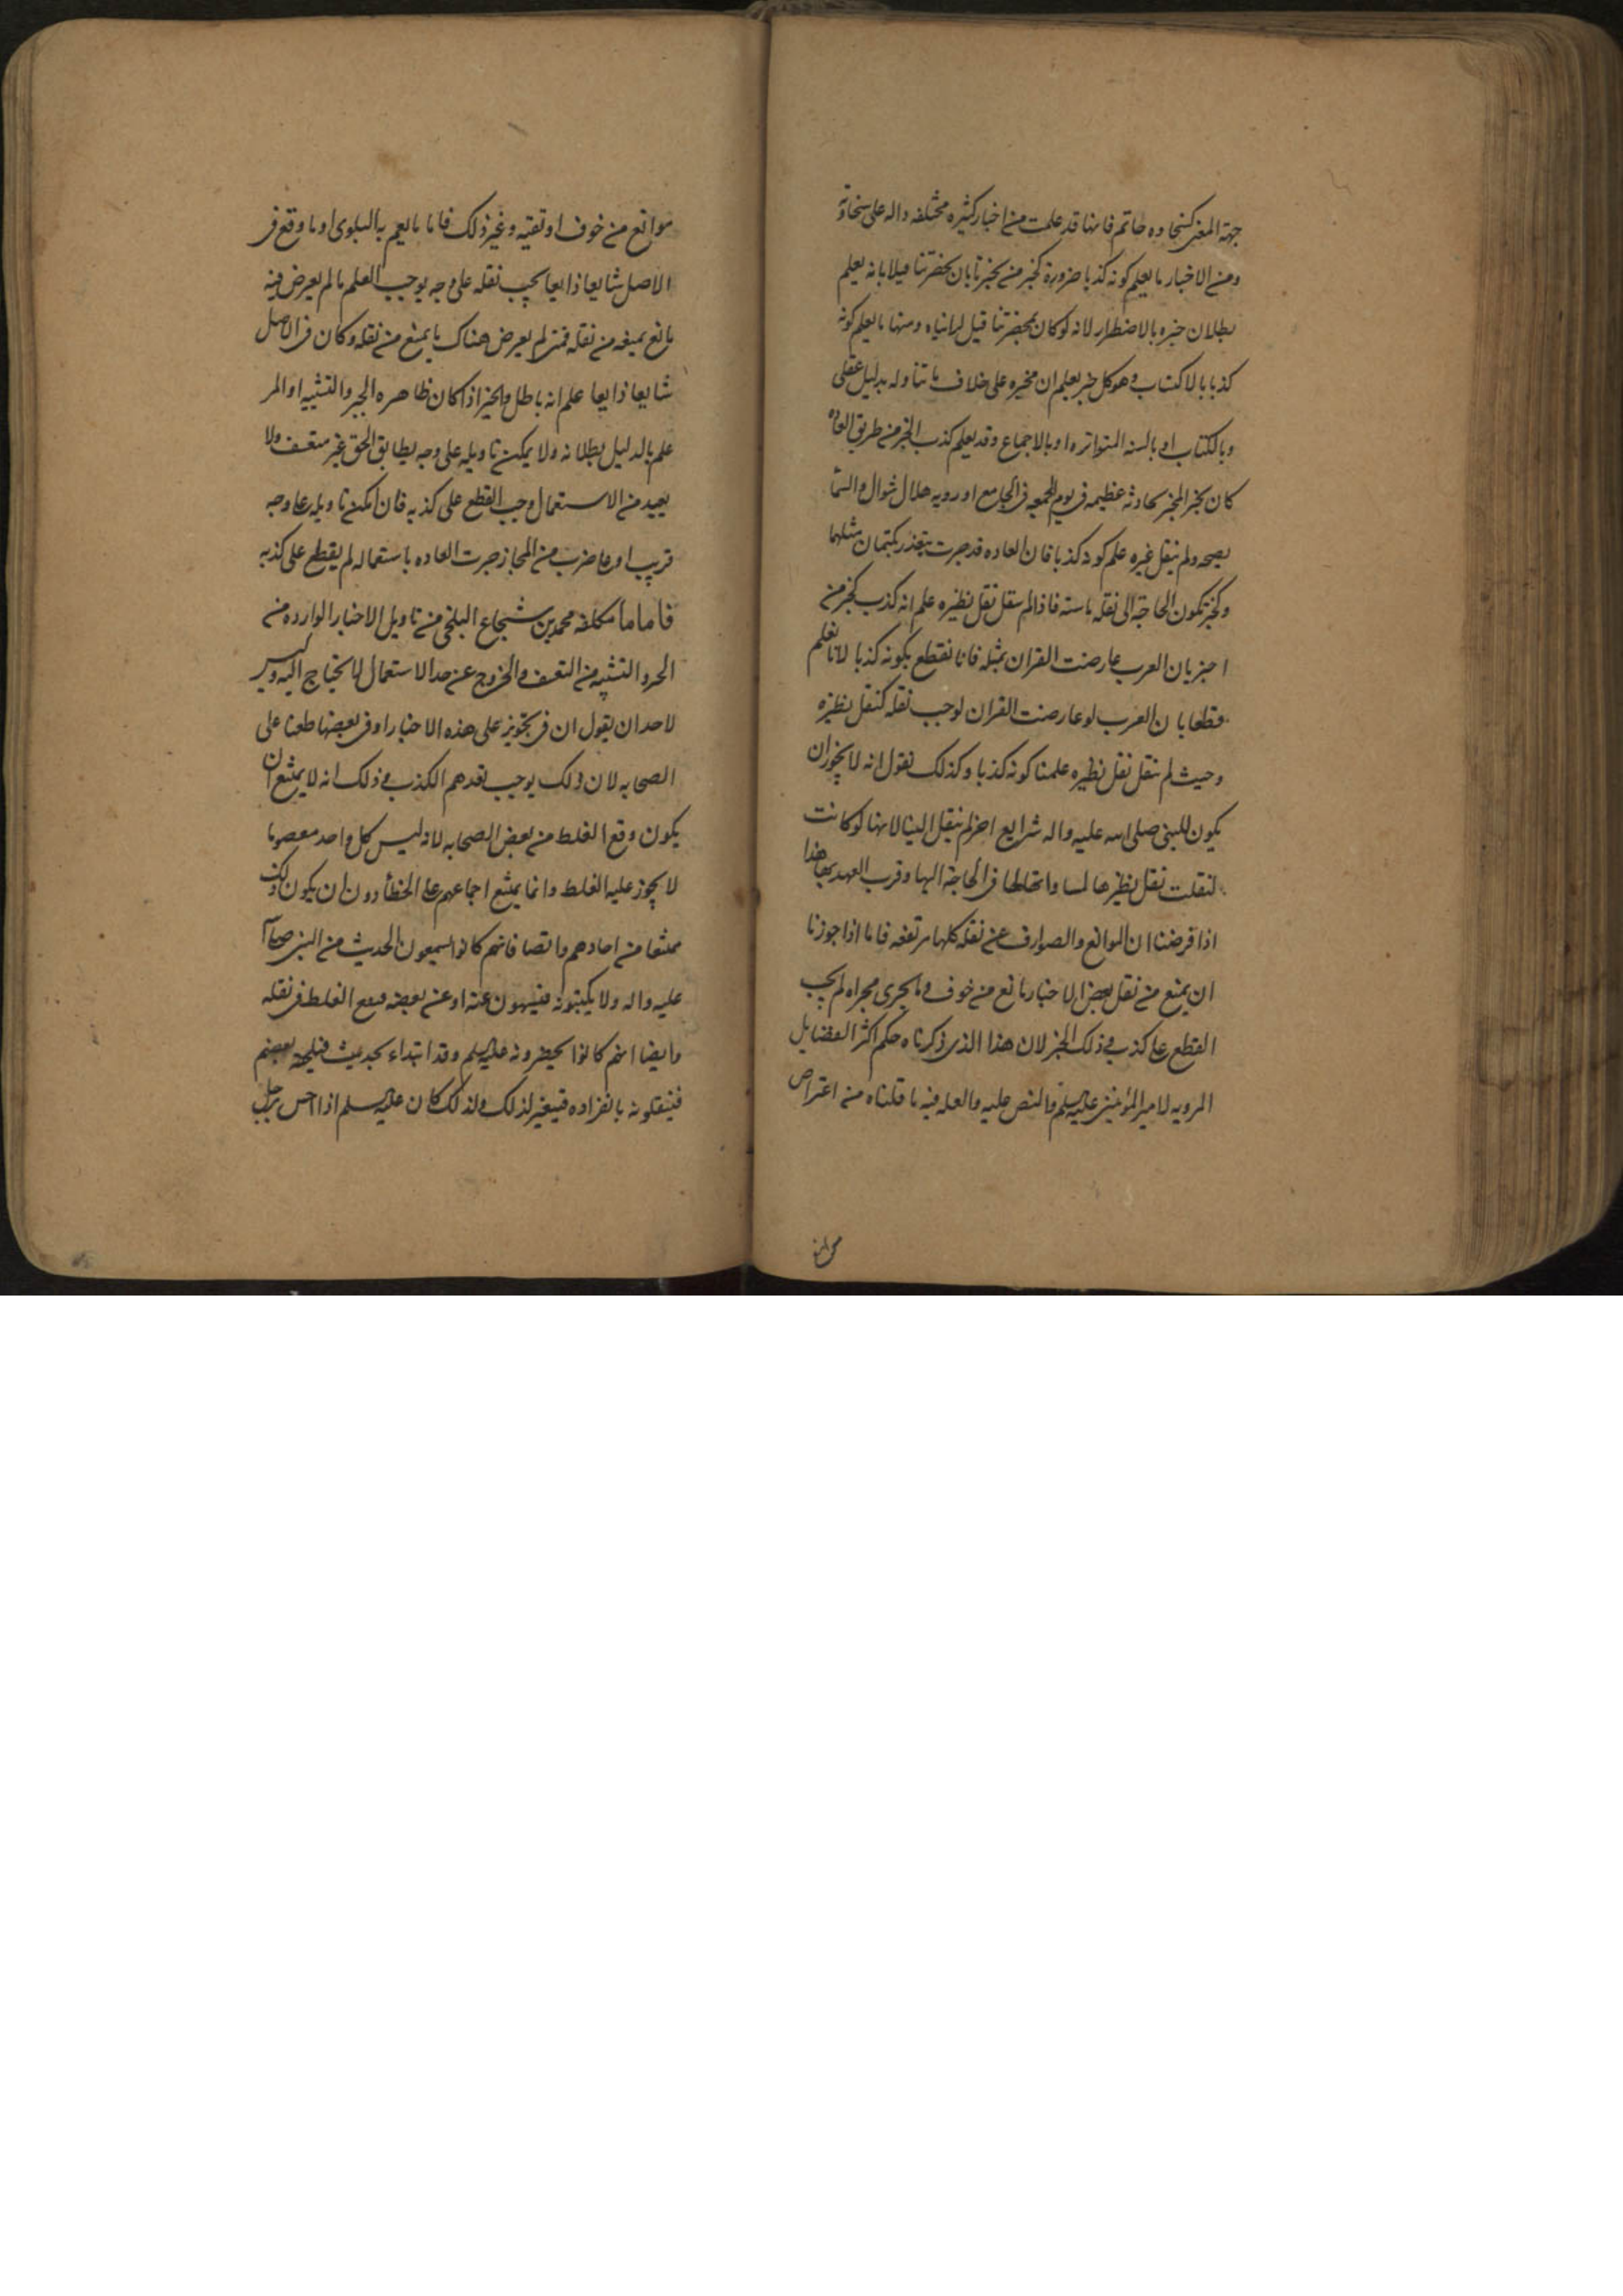 جهة المعنى كسخاوه حاتم فانها قد علمت من اخبار كثيره مختلفه داله على سخاوته
ومن الاخبار ما يعلم كونه كذبا ضرورة كخبر من يخبرنا بان بحضرتنا فيلا بانه يعلم
بطلان خبره بالاضطرار لانه لو كان بحضرتنا فيل لرايناه ومنها ما يعلم كونه
كذبا بالاكتساب وهو كل خبر يعلم ان مخبره على خلاف ما تناوله بدليل عقلى
وبالكتاب او بالسنه المتواتره او بالاجماع وقد يعلم كذب الخبر من طريق العاده
كان يخبر المخبر بحادثه عظيمه فى يوم الجمعه فى الجامع او رويه هلال شوال والسما
مصحيه ولم ينقل غيره علم كونه كذبا فان العاده قد جرت بتعذر كتمان مثلها
وكخبر تكون الحاجة الى نقله ماسته فاذا لم ينقل نقل نظيره علم انه كذب كخبر من
اخبر بان العرب عارضت القران بمثله فانا نقطع بكونه كذبا لانا نعلم
قطعا بان العرب لو عارضت القران لوجب نقله كنقل نظيره
وحيث لم ينقل نقل نظيره علمنا كونه كذبا وكذلك نقول انه لا يجوز ان
يكون للنبى صلى الله عليه واله شرايع اخر لم ينقل الينا لانها لو كانت
لنقلت نقل نظيرها لمساواتها لها فى الحاجة اليها وقرب العهد بها هذا
اذا فرضنا ان الموانع والصوارف عن نقله كلها مرتفعه فاما اذا جوزنا
ان يمنع من نقل بعض الاخبار مانع من خوف وما يجرى مجراه لم يجب
القطع على كذب ذلك الخبر لان هذا الذى ذكرناه حكم اكثر الفضايل
المرويه لامير المؤمنين عليه السلم والنص عليه والعله فيه ما قلناه من اعتراض
موانع من خوف او تقيه وغير ذلك فاما ما يعم به البلوى او ما وقع فى
الاصل شايعا ذايعا يجب نقله على وجه يوجب العلم ما لم يعرض فيه
مانع يمنعه من نقله فمتى لم يعرض هناك ما يمنع من نقله وكان فى الاصل
شايعا ذايعا علم انه باطل والخبر اذا كان ظاهره الجبر والتشبيه او امر
علم بالدليل بطلانه ولا يمكن تاويله على وجه يطابق الحق غير متعسف ولا
بعيد من الاستعمال وجب القطع على كذبه فان امكن تاويله على وجه
قريب او على ضرب من المجاز جرت العاده باستعماله لم يقطع على كذبه
فاما ما تكلفه محمد بن شجاع البلخى من تاويل الاخبار الوارده من
الجبر والتشبيه من التعسف والخروج عن حد الاستعمال لا يحتاج اليه وليس
لاحد ان يقول ان فى تجويز على هذه الاخبار او فى بعضها طعنا على
الصحابه لان ذلك يوجب تعمدهم الكذب ذلك انه لا يمتنع ان
يكون وقع الغلط من بعض الصحابه لانه ليس كل واحد معصوما
لا يجوز عليه الغلط وانما يمتنع اجماعهم على الخطأ دون ان يكون ذلك
ممتنعا من احادهم وايضا فانهم كانوا يسمعون الحديث من النبى صلى الله
عليه واله ولا يكتبونه فيسهون عنه او عن بعضه فيقع الغلط فى نقله
وايضا انهم كانوا يحضرونه عليه السلم وقد ابتداء بحديث فيلحقه بعضهم
فينقلونه بانفراده فيتغير لذلك ولذلك كان عليه السلم اذا احس برجل